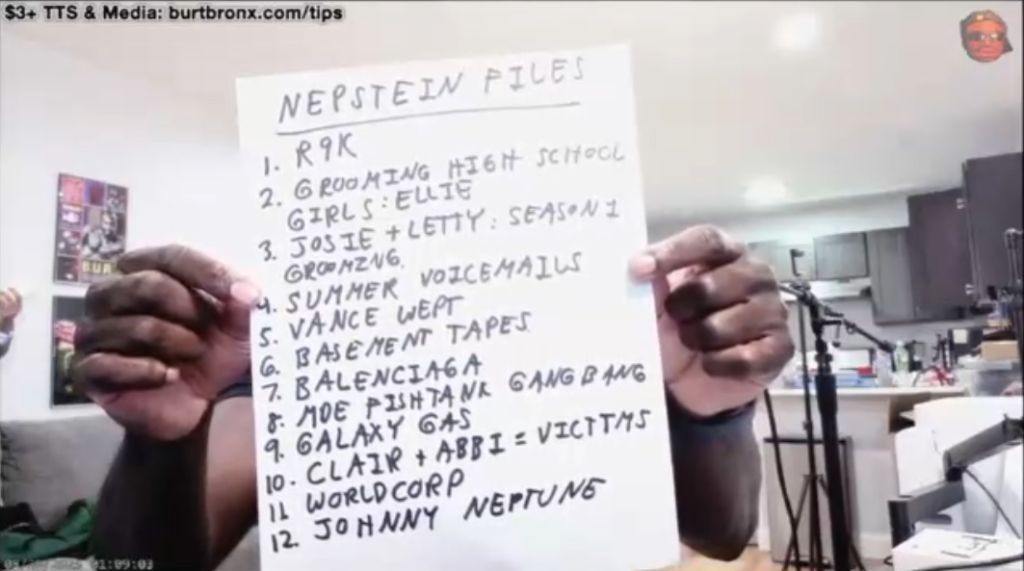 $3+ TTS & Media: burtbronx.com/tips
NEPSTEIN FILES
1. R9K
2. GROOMING HIGH SCHOOL
GIRLS: ELLIE
3. JOSIE + LETTY: SEASON 1
GROOMING.
4. SUMMER VOICEMAILS
5. VANCE WEPT
6. BASEMENT TAPES
7. BALENCIAGA
8. MOE FISHTANK GANGBANG
9. GALAXY GAS
10. CLAIR + ABBI = VICTIMS
11 WORLDCORP
12. JOHNNY NEPTUNE
01:09:03